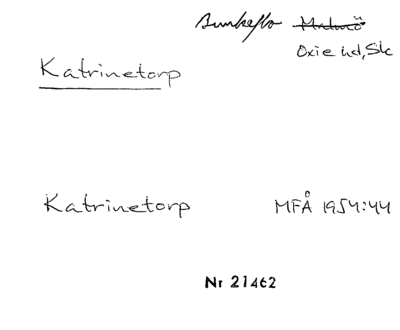 Bunkeflo Malmö
Oxie hd, Sk
Katrinetorp
Katrinetorp MFÅ 1954:44
Nr 21462